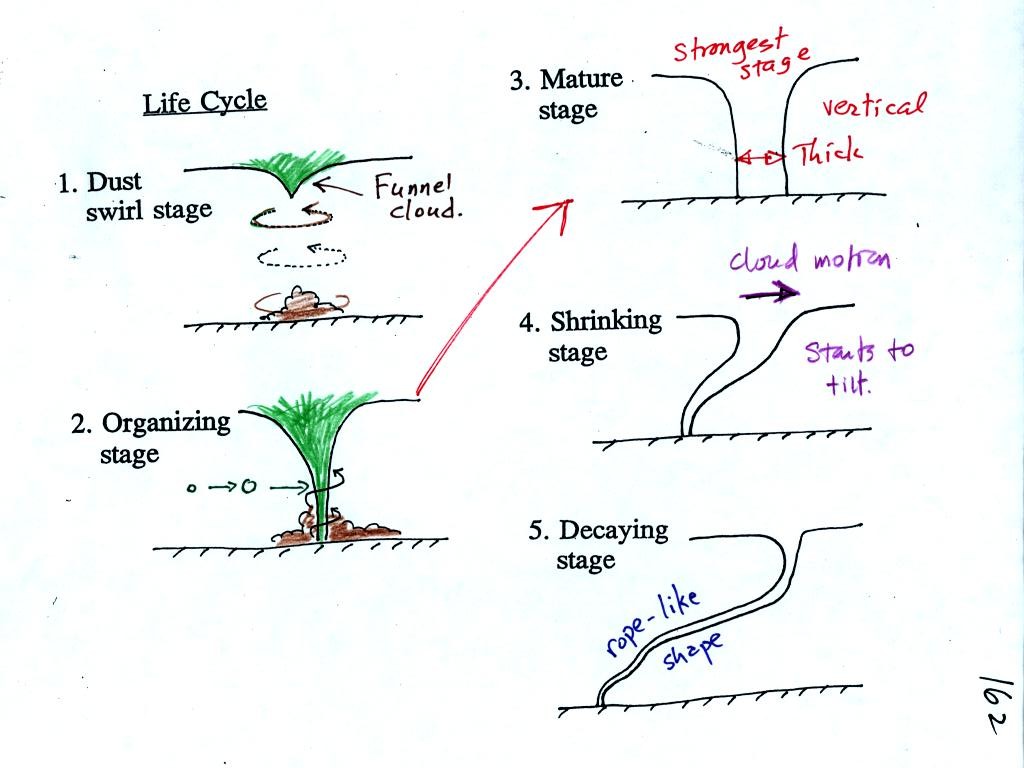 Life Cycle
1. Dust
swirl stage
Funnel
cloud.
2. Organizing
stage
3. Mature
stage
Strongest
stage
vertical
Thick
cloud motion
4. Shrinking
stage
Starts to
tilt.
5. Decaying
stage
rope-like
shape
162